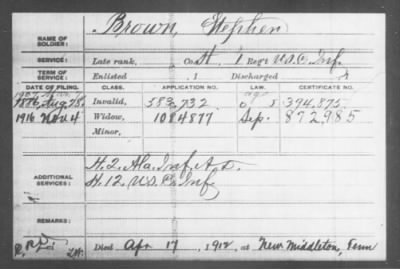 NAME OF SOLDIER: Brown, Stephen
SERVICE: Late rank, Co. H, 1 Reg't U.S.C. Inf.
TERM OF SERVICE: Enlisted , 1 Discharged , 1
DATE OF FILING. CLASS. APPLICATION NO. LAW. CERTIFICATE NO.
1880, Aug. 28. Invalid, 383,732 394,875.
1916 Nov 4 Widow, 1084877 Sep. 872,985
Minor,
ADDITIONAL SERVICES: H. 2. Ala. Inf. A.D.
H. 12. U.S.C. Inf.
REMARKS:
Died Apr 17, 1912, at New Middleton, Tenn